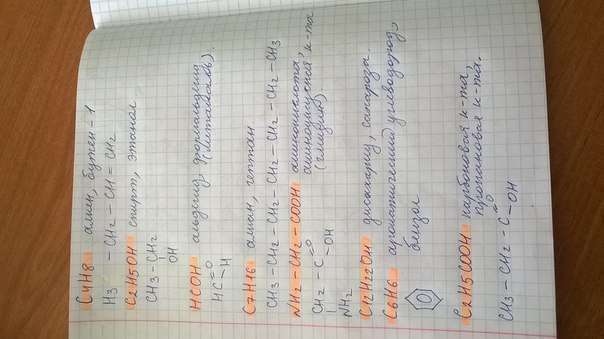 C4H8 алкен, бутен-1
H3 - CH2 - CH = CH2
C2H5OH спирт, этанол
CH3 - CH2
OH
HCOH альдегид, формальдегид
(метаналь)
HC=O
H
C7H16 алкан, гептан
CH3 - CH2 - CH2 - CH2 - CH2 - CH2 - CH3
NH2 - CH2 - COOH аминокислота,
аминоуксусная к-та
(глицин)
CH2 - C=O
OH
NH2
C12H22O11 дисахарид, сахароза
C6H6 ароматический углеводород,
бензол
C2H5COOH карбоновая к-та,
пропановая к-та.
CH3 - CH2 - C=O
OH